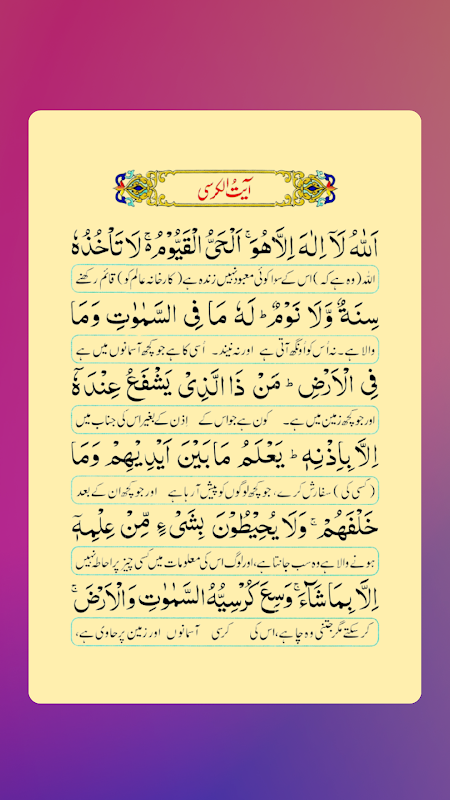 آیت الکرسی
اَللّٰهُ لَاۤ اِلٰهَ اِلَّا هُوَ ۚ اَلْحَیُّ الْقَیُّوْمُ ۚ۬ لَا تَاْخُذُهٗ
اللہ (وہ ہے کہ) اس کے سوا کوئی معبود نہیں زندہ ہے (کارخانہ عالم کو) قائم رکھنے
سِنَةٌ وَّلَا نَوْمٌ ؕ لَهٗ مَا فِی السَّمٰوٰتِ وَمَا
والا ہے۔ نہ اُس کو اونگھ آتی ہے اور نہ نیند۔ اُسی کا ہے جو کچھ آسمانوں میں ہے
فِی الْاَرْضِ ؕ مَنْ ذَا الَّذِیْ یَشْفَعُ عِنْدَهٗۤ
اور جو کچھ زمین میں ہے۔ کون ہے جو اس کے اِذن کے بغیر اس کی جناب میں
اِلَّا بِاِذْنِهٖ ؕ یَعْلَمُ مَا بَیْنَ اَیْدِیْهِمْ وَمَا
(کسی کی) سفارش کرے، جو کچھ لوگوں کو پیش آ رہا ہے اور جو کچھ ان کے بعد
خَلْفَهُمْ ۚ وَلَا یُحِیْطُوْنَ بِشَیْءٍ مِّنْ عِلْمِهٖۤ
ہونے والا ہے وہ سب جانتا ہے، اور لوگ اس کی معلومات میں کسی چیز پر احاطہ نہیں
اِلَّا بِمَا شَآءَ ۚ وَسِعَ كُرْسِیُّهُ السَّمٰوٰتِ وَالْاَرْضَ ۚ
کر سکتے مگر جتنی وہ چاہے، اس کی کرسی آسمانوں اور زمین پر حاوی ہے،